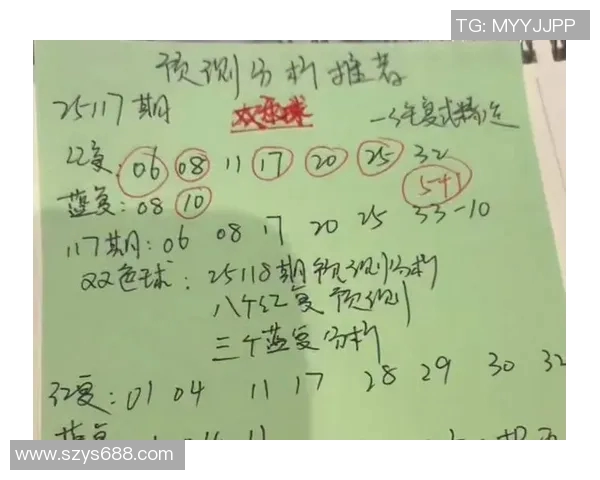 TG: MYYJJPP
预测分析推荐
25117期 双色球 一注复式精选
红复: 06 08 11 17 20 25 32
蓝复: 08 10 5+1
117期: 06 08 17 20 25 33-10
双色球: 25118期预测分析
八个红复预测
三个蓝复分析
红复: 01 04 11 17 28 29 30 32
www.szys688.com